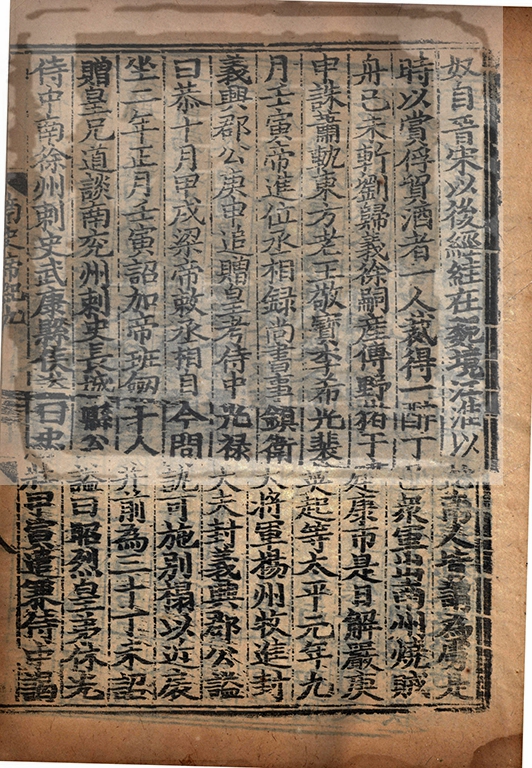 奴自晉宋以後經絓在魏境江淮以北南人皆謂為虜是
時以賞俘貿酒者一人裁得一醉丁巳衆軍出南州燒賊
舟已未斬劉歸義徐嗣産傅野猪于建康市是日解嚴庚
申誅蕭軌東方老王敬寶李希光裴英起等太平元年九
月壬寅帝進位丞相録尚書事鎮衛大將軍楊州牧進封
義興郡公庚申追贈皇考侍中光禄大夫封義興郡公謚
曰恭十月甲戌梁帝敕丞相自今問訊可施別榻以近扆
坐二年正月壬寅詔加帝班劒十人并前為三十丁未詔
贈皇兄道談南兖州刺史長城縣公謚曰昭烈皇弟休光
侍中南徐州刺史武康縣侯謚曰忠壯甲寅遣兼侍中謁
南史帝紀九